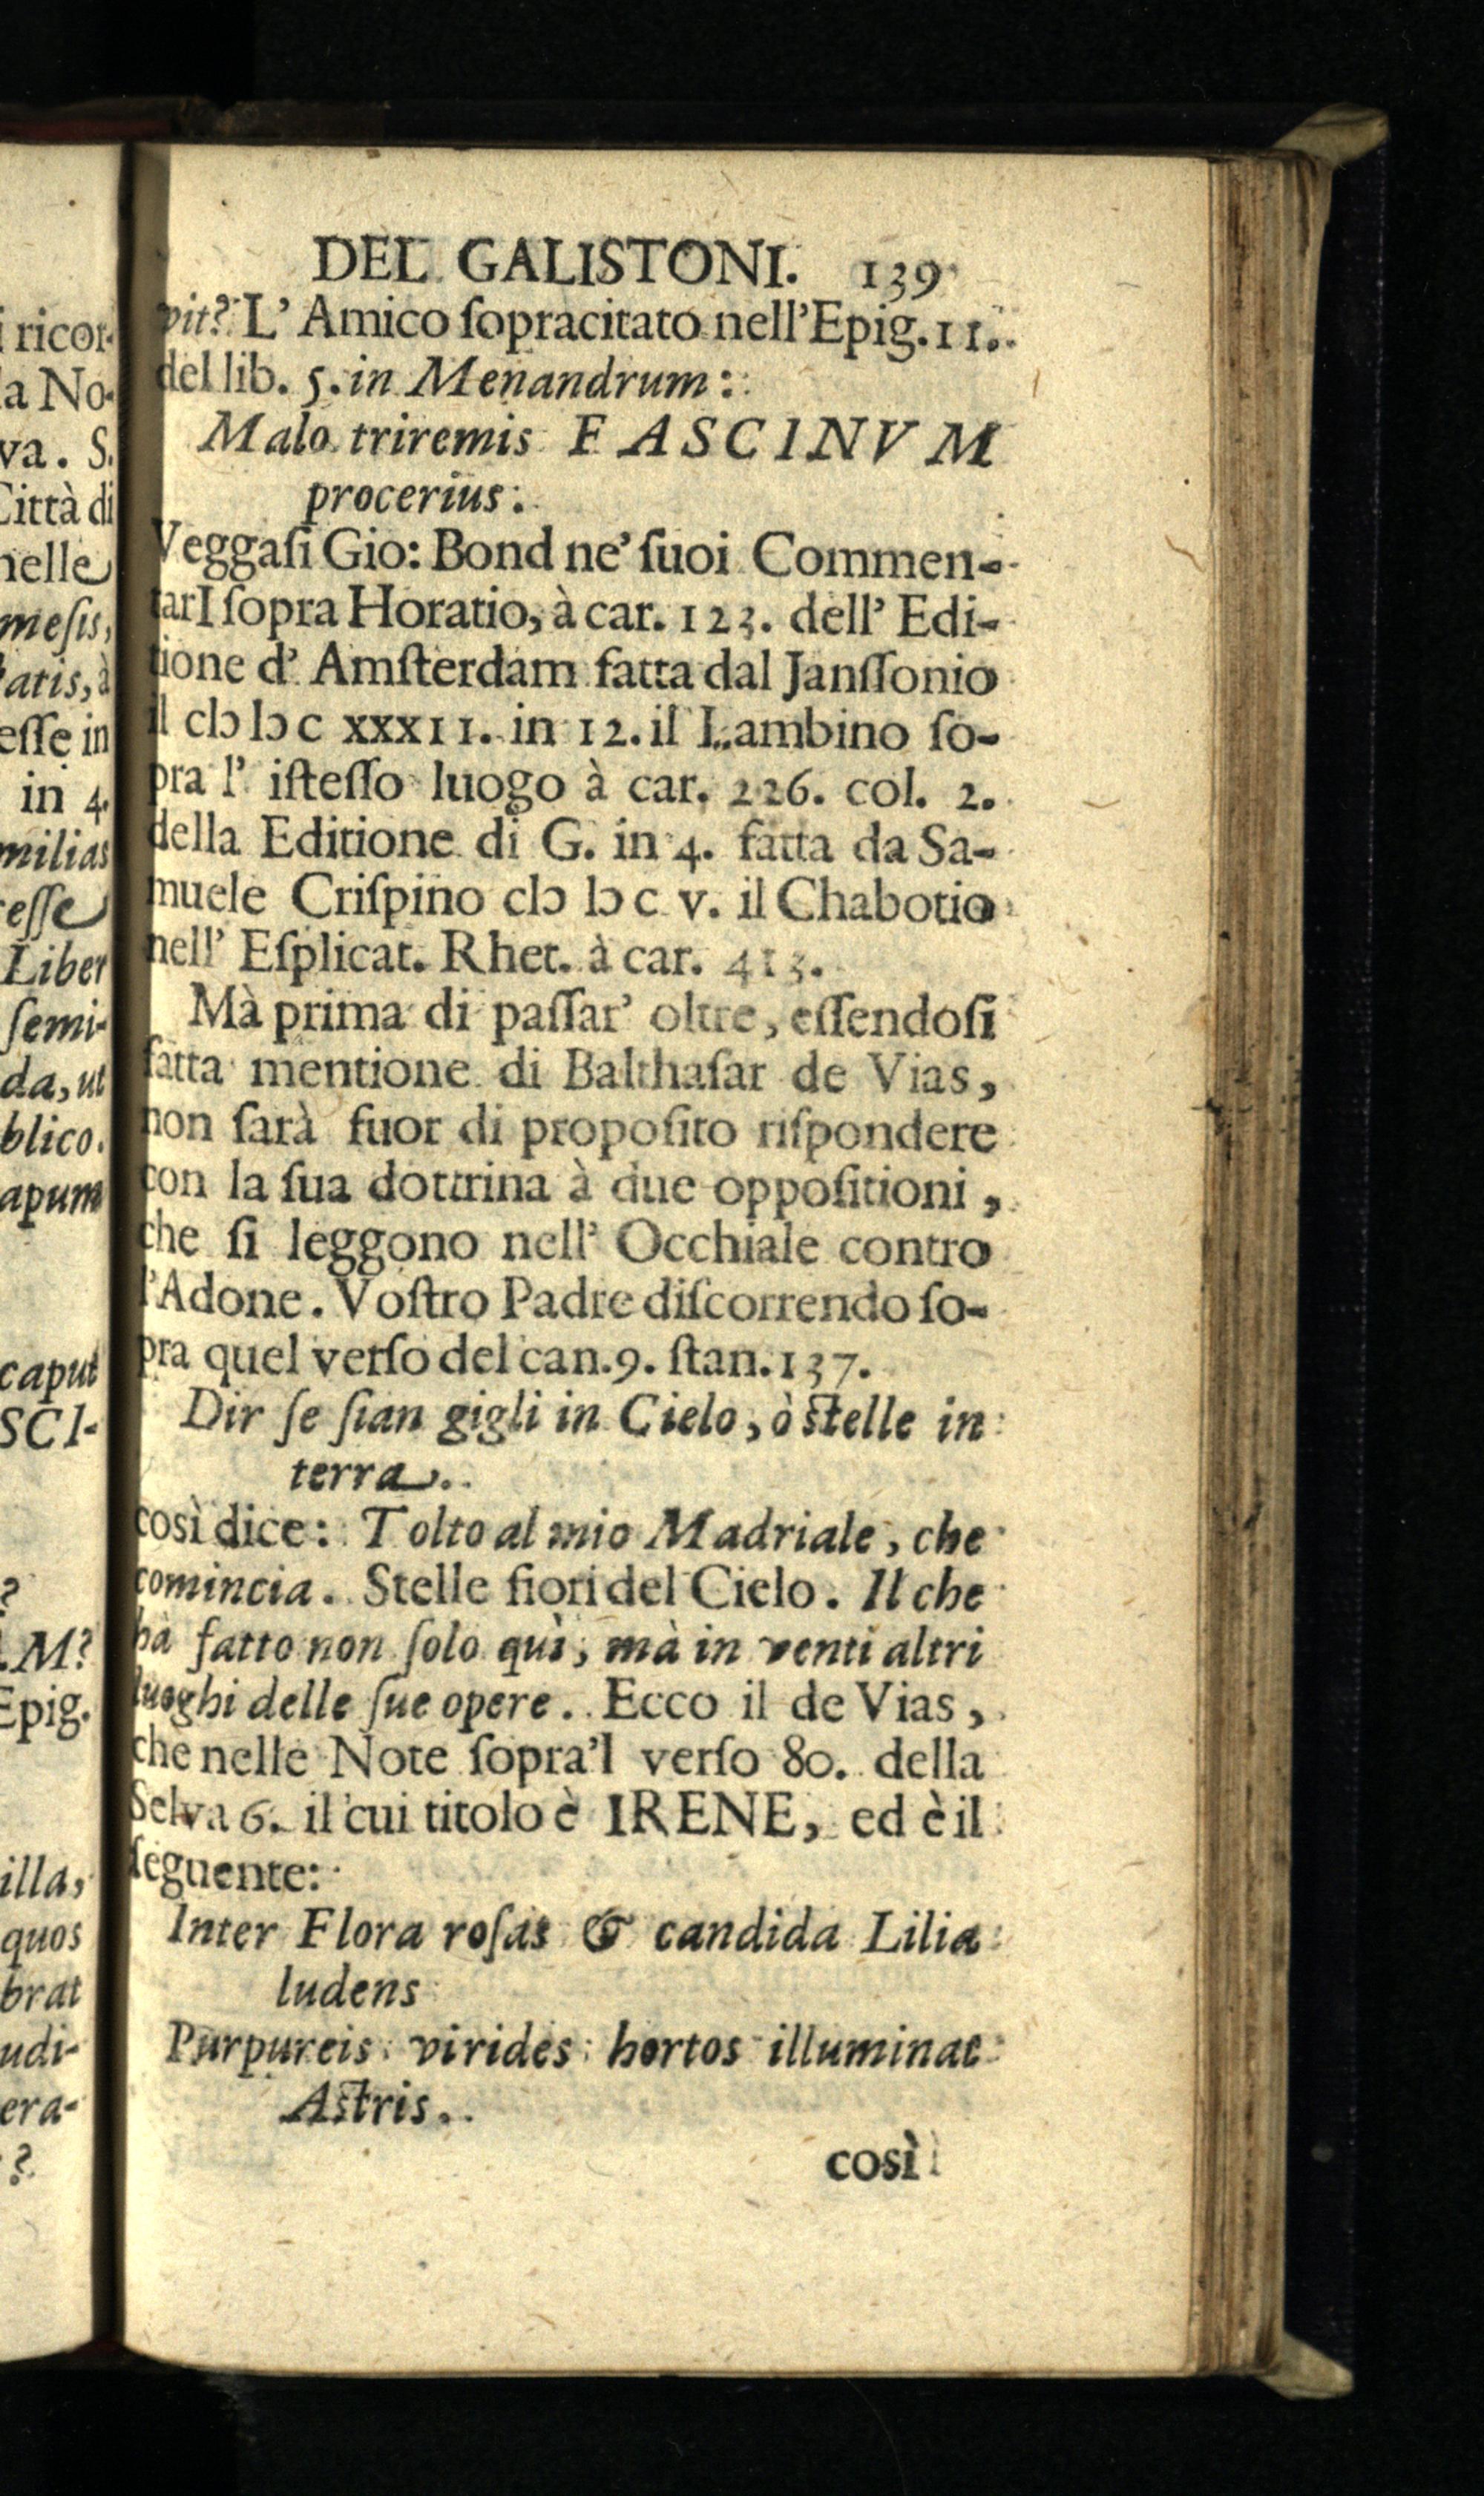 DEL GALISTONI. 139
vit? L' Amico ſopracitato nell'Epig. 11.
del lib. 5. in Menandrum:
Malo triremis FASCINVM
procerius.
Veggaſi Gio: Bond ne' ſuoi Commen-
tarI ſopra Horatio, à car. 123. dell' Edi-
tione d' Amſterdam fatta dal Janſſonio
il cIↄ Iↄ c xxxII. in 12. il Lambino ſo-
pra l' iſteſſo luogo à car. 226. col. 2.
della Editione di G. in 4. fatta da Sa-
muele Criſpino cIↄ Iↄ c v. il Chabotio
nell' Eſplicat. Rhet. à car. 413.
Mà prima di paſſar' oltre, eſſendoſi
fatta mentione di Balthaſar de Vias,
non ſarà fuor di propoſito riſpondere
con la ſua dottrina à due oppoſitioni,
che ſi leggono nell' Occhiale contro
l'Adone. Voſtro Padre diſcorrendo ſo-
pra quel verſo del can. 9. ſtan. 137.
Dir ſe ſian gigli in Cielo, ò ſtelle in
terra.
così dice: Tolto al mio Madriale, che
comincia. Stelle fiori del Cielo. Il che
hà fatto non ſolo quì, mà in venti altri
luoghi delle ſue opere. Ecco il de Vias,
che nelle Note ſopra'l verſo 80. della
Selva 6. il cui titolo è IRENE, ed è il
ſeguente:
Inter Flora roſas & candida Lilia
ludens
Purpureis virides hortos illuminat
Aſtris.
così
i ricor-
la No-
va. S.
Città di
nelle
meſis,
atis, à
eſſe in
in 4.
milias
eſſe
Liber
ſemi-
da, ut
blico.
apum
caput
SCI-
?
M?
Epig.
illa,
quos
brat
udi-
era-
?